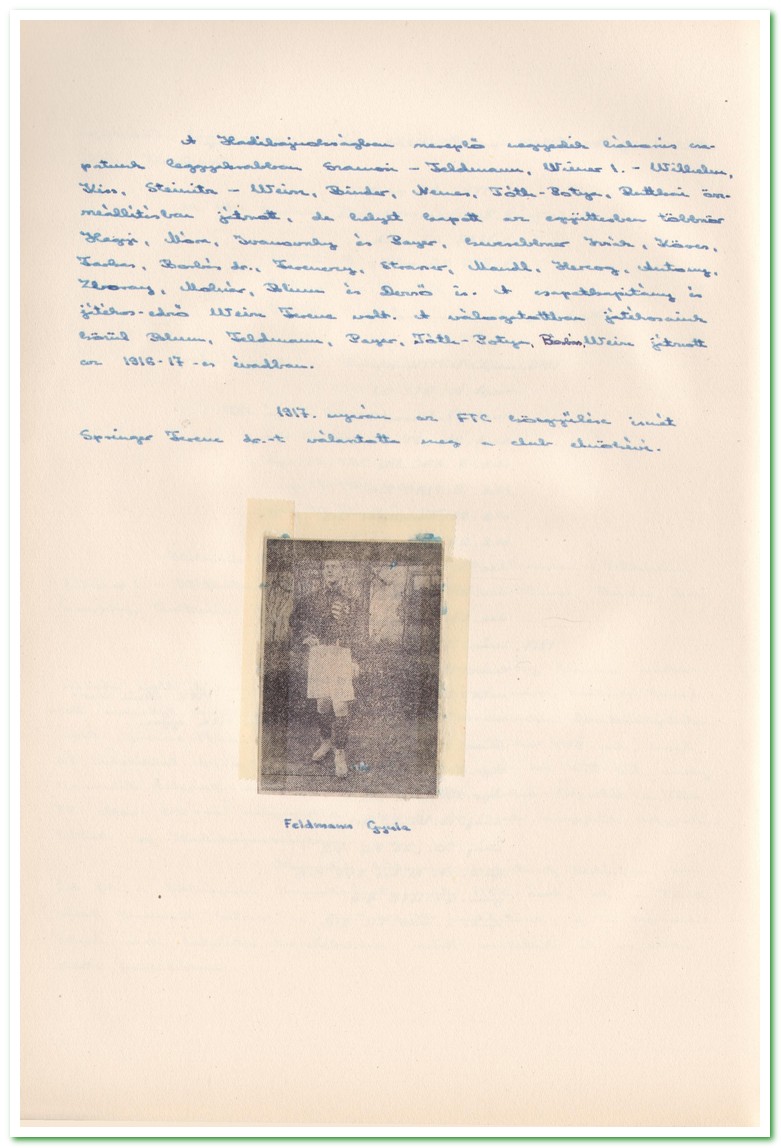 A Hadibajnokságban szereplő negyedik helyezett csa-
patunk leggyakrabban Szamosi - Feldmann, Wiener I. - Wilhelm,
Kiss, Steinitz - Weisz, Binder, Nemes, Tóth-Potya, Ruttkai ösz-
szeállításban játszott, de helyet kapott az együttesben többször
Hajji, Móra, Ivanovszky és Payer, kevesebbszer Izsák, Köves,
Farkas, Barbás dr., Ferenczy, Strasser, Mandl, Herczog, Antony,
Zloray, Molnár, Blum és Dernő is. A csapatkapitány és
játékos-edző Weisz Ferenc volt. A válogatottban játékosaink
közül Blum, Feldmann, Payer, Tóth-Potya, Barbás, Weisz játszott
az 1916-17-es évadban.
1917. nyarán az FTC közgyűlése ismét
Springer Ferenc dr.-t választotta meg a club elnökévé.
Feldmann Gyula